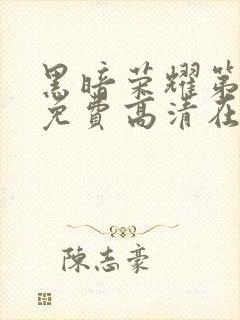 黑暗荣耀第
免费高清在
陈志豪